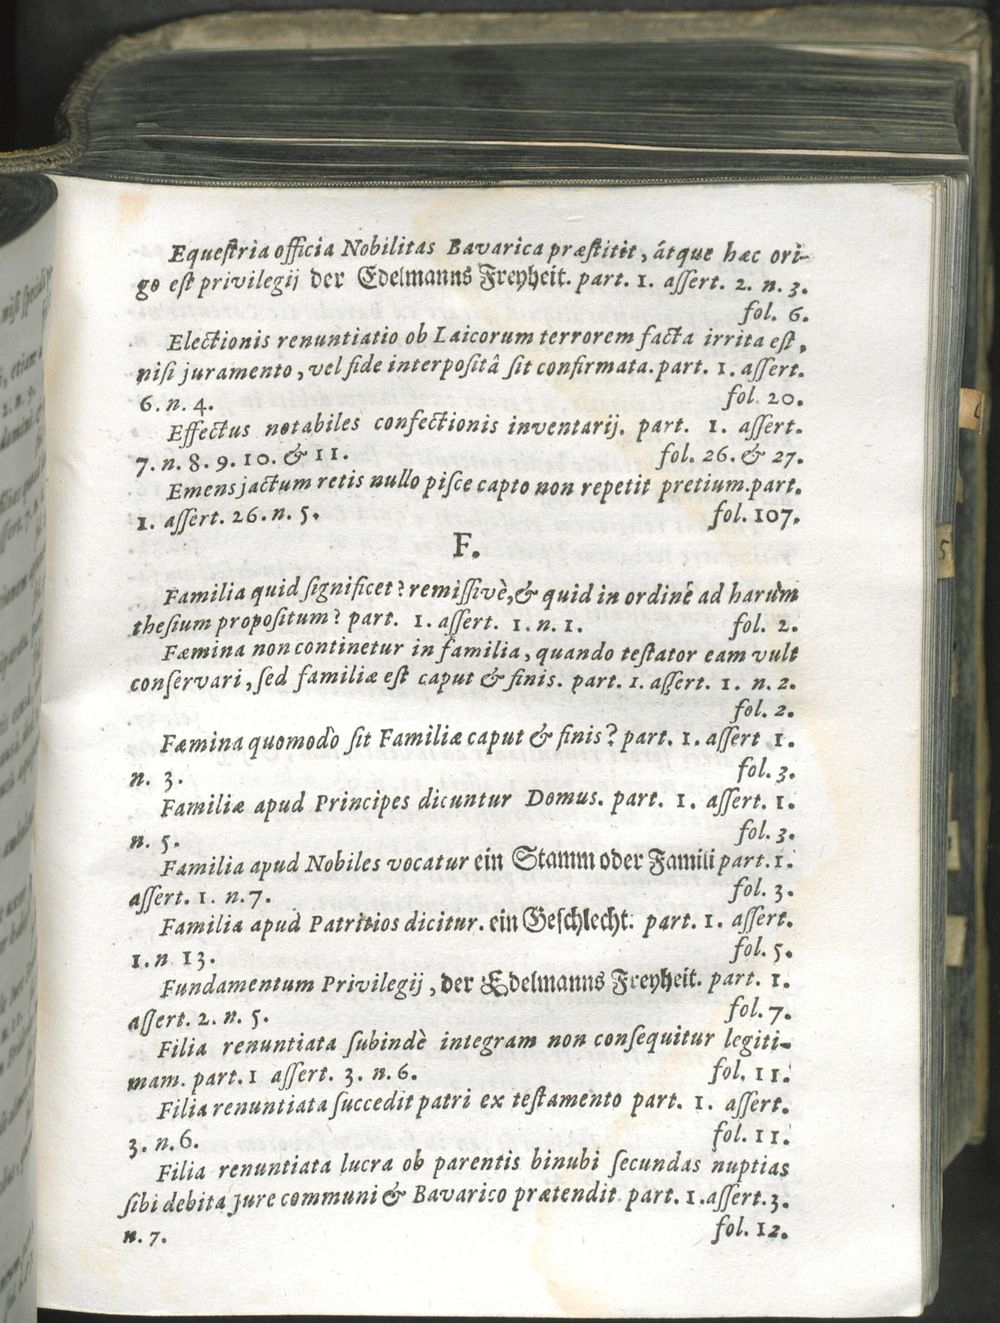 Equeſtria officia Nobilitas Bavarica præſtitit, átque hæc ori-
go eſt privilegij der Edelmanns Freyheit. part. 1. aſſert. 2. n. 3.
fol. 6.
Electionis renuntiatio ob Laicorum terrorem facta irrita eſt,
niſi juramento, vel fide interpoſitâ ſit confirmata. part. 1. aſſert.
6. n. 4. fol. 20.
Effectus notabiles confectionis inventarij. part. 1. aſſert.
7. n. 8. 9. 10. & 11. fol. 26. & 27.
Emens jactum retis nullo piſce capto non repetit pretium. part.
1. aſſert. 26. n. 5. fol. 107.
F.
Familia quid ſignificet? remiſſivè, & quid in ordinè ad harum
theſium propoſitum? part. 1. aſſert. 1. n. 1. fol. 2.
Fæmina non continetur in familia, quando teſtator eam vult
conſervari, ſed familiæ eſt caput & finis. part. 1. aſſert. 1. n. 2.
fol. 2.
Fæmina quomodo ſit Familiæ caput & finis? part. 1. aſſert 1.
n. 3. fol. 3.
Familiæ apud Principes dicuntur Domus. part. 1. aſſert. 1.
n. 5. fol. 3.
Familia apud Nobiles vocatur ein Stamm oder Famili part. 1.
aſſert. 1. n. 7. fol. 3.
Familia apud Patritios dicitur. ein Geſchlecht. part. 1. aſſert.
1. n 13. fol. 5.
Fundamentum Privilegij, der Edelmanns Freyheit. part. 1.
aſſert. 2. n. 5. fol. 7.
Filia renuntiata ſubindè integram non conſequitur legiti-
mam. part. 1 aſſert. 3. n. 6. fol. 11.
Filia renuntiata ſuccedit patri ex teſtamento part. 1. aſſert.
3. n. 6. fol. 11.
Filia renuntiata lucra ob parentis binubi ſecundas nuptias
ſibi debita jure communi & Bavarico prætendit part. 1. aſſert. 3.
n. 7. fol. 12.
5